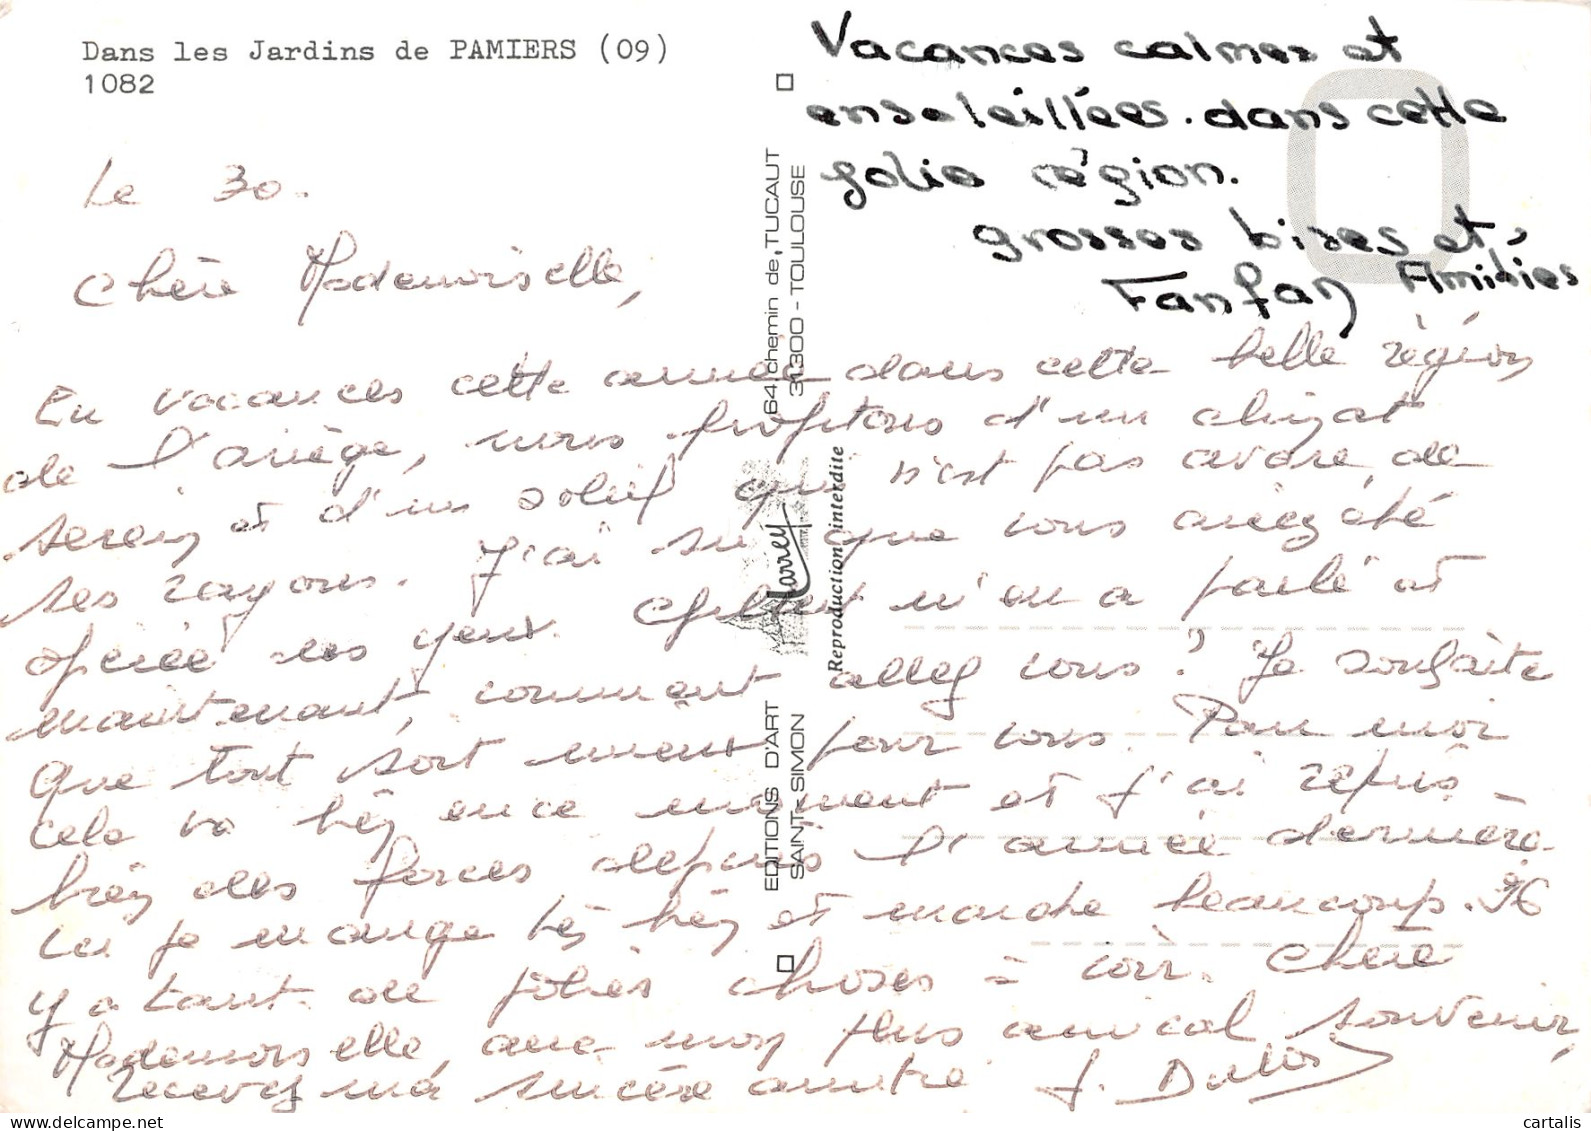 Dans les Jardins de PAMIERS (09)
1082
Vacances calmes et
ensoleillées. dans cette
jolie région.
grosses bises et
Amitiés
Fanfan
Le 30.
Chère Mademoiselle,
En vacances cette année dans cette belle région
de l'ariège, nous profitons d'un climat
serein et d'un soleil qui n'est pas avare de
ses rayons. J'ai su que vous aviez été
opérée des yeux. Gilbert m'en a parlé et
maintenant, comment allez vous ? Je souhaite
que tout sort pour vous. Pour moi
cela va bien en ce moment et j'ai repris
bien des forces depuis l'année dernière
car je mange très bien et marche beaucoup. Il
y a tant de jolies choses à voir. Chère
Mademoiselle, avec mon plus amical souvenir,
recevez ma sincère amitié J.
EDITIONS D'ART 64, chemin de TUCAUT
SAINT-SIMON 31300 - TOULOUSE
Larrey
Reproduction interdite
www.delcampe.net
cartalis